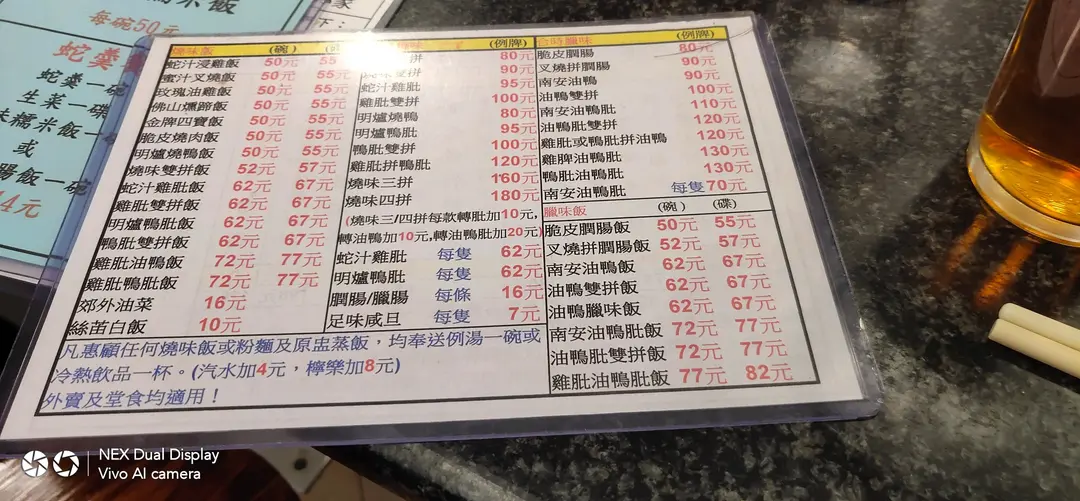 糯米飯
每碗50元
蛇羹
蛇羹一碗
生菜一碟
味糯米飯一
或
腸飯一碗
4元
燒味飯 (碗)
蛇汁浸雞飯 50元 55
蜜汁叉燒飯 50元 55元
玫瑰油雞飯 50元 55元
佛山燻蹄飯 50元 55元
金牌四寶飯 50元 55元
脆皮燒肉飯 50元 55元
明爐燒鴨飯 50元 55元
燒味雙拼飯 52元 57元
蛇汁雞肶飯 62元 67元
雞肶雙拼飯 62元 67元
明爐鴨肶飯 62元 67元
鴨肶雙拼飯 62元 67元
雞肶油鴨飯 72元 77元
雞肶鴨肶飯 72元 77元
郊外油菜 16元
絲苗白飯 10元
(例牌)
拼 80元
雙拼 90元
蛇汁雞肶 95元
雞肶雙拼 100元
明爐燒鴨 80元
明爐鴨肶 95元
鴨肶雙拼 100元
雞肶拼鴨肶 120元
燒味三拼 160元
燒味四拼 180元
(燒味三/四拼每款轉肶加10元,
轉油鴨加10元,轉油鴨肶加20元)
蛇汁雞肶 每隻 62元
明爐鴨肶 每隻 62元
膶腸/臘腸 每條 16元
足味咸旦 每隻 7元
合時臘味 (例牌)
脆皮膶腸 80元
叉燒拼膶腸 90元
南安油鴨 90元
油鴨雙拼 100元
南安油鴨肶 110元
油鴨肶雙拼 120元
雞肶或鴨肶拼油鴨 120元
雞脾油鴨肶 130元
鴨肶油鴨肶 130元
南安油鴨肶 每隻70元
臘味飯 (碗) (碟)
脆皮膶腸飯 50元 55元
叉燒拼膶腸飯 52元 57元
南安油鴨飯 62元 67元
油鴨雙拼飯 62元 67元
油鴨臘味飯 62元 67元
南安油鴨肶飯 72元 77元
油鴨肶雙拼飯 72元 77元
雞肶油鴨肶飯 77元 82元
凡惠顧任何燒味飯或粉麵及原盅蒸飯，均奉送例湯一碗或
冷熱飲品一杯。(汽水加4元，檸樂加8元)
外賣及堂食均適用！
NEX Dual Display
Vivo AI camera